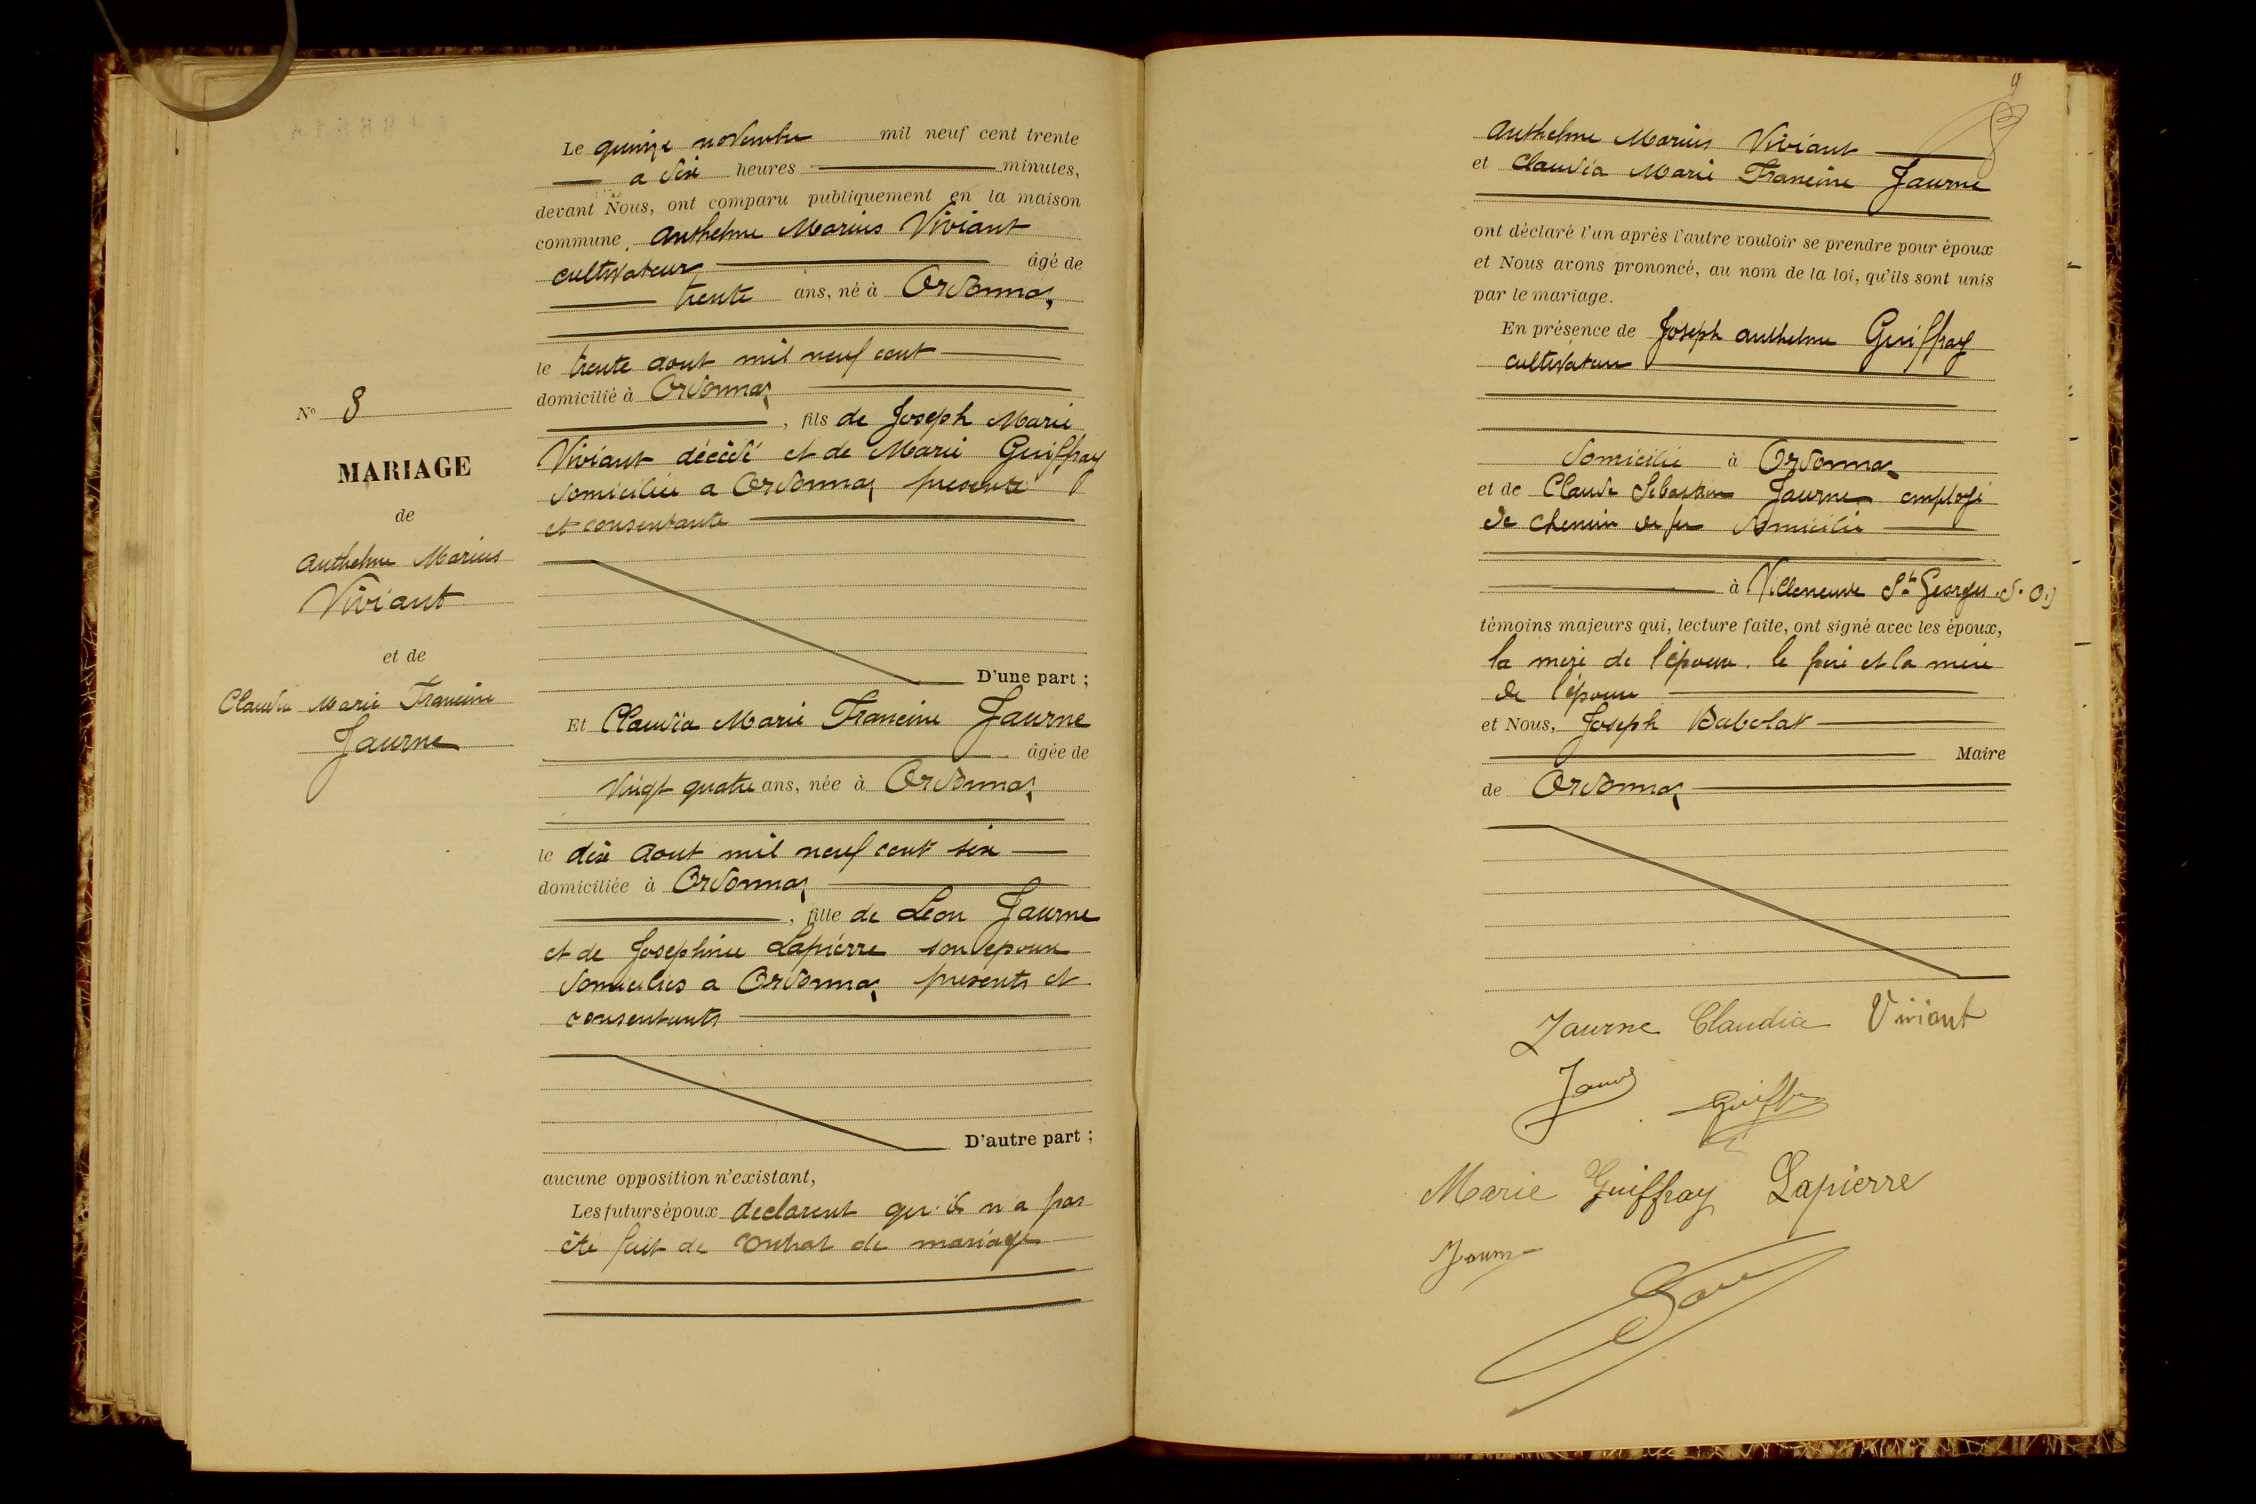 Nº 8
MARIAGE
de
Anthelme Marius
Viviant
et de
Claudia Marie Francine
Jaurne
Le quinze novembre mil neuf cent trente
a dix heures minutes,
devant Nous, ont comparu publiquement en la maison
commune, Anthelme Marius Viviant
cultivateur âgé de
trente ans, né à Ordonnaz
le trente aout mil neuf cent
domicilié à Ordonnaz
, fils de Joseph Marie
Viviant décédé et de Marie Guiffray
domiciliée a Ordonnaz presente
et consentante
D'une part ;
Et Claudia Marie Francine Jaurne
âgée de
vingt quatre ans, née à Ordonnaz
le dix aout mil neuf cent six
domiciliée à Ordonnaz
, fille de Leon Jaurne
et de Josephine Lapierre son epouse
domiciliés a Ordonnaz presents et
consentants
D'autre part ;
aucune opposition n'existant,
Les futurs époux declarent qu'il n'a pas
été fait de contrat de mariage
9
Anthelme Marius Viviant
et Claudia Marie Francine Jaurne
ont déclaré l'un après l'autre vouloir se prendre pour époux
et Nous avons prononcé, au nom de la loi, qu'ils sont unis
par le mariage.
En présence de Joseph Anthelme Guiffray
cultivateur
domicilié à Ordonnaz
et de Claude Sebastien Jaurne employé
de chemin de fer domicilié
à Villeneuve St Georges S. O.)
témoins majeurs qui, lecture faite, ont signé avec les époux,
la mère de l'époux. le père et la mère
de l'épouse
et Nous, Joseph Babolat
Maire
de Ordonnaz
Jaurne Claudia Viviant
Guiffray
Marie Guiffray Lapierre
Jaurne